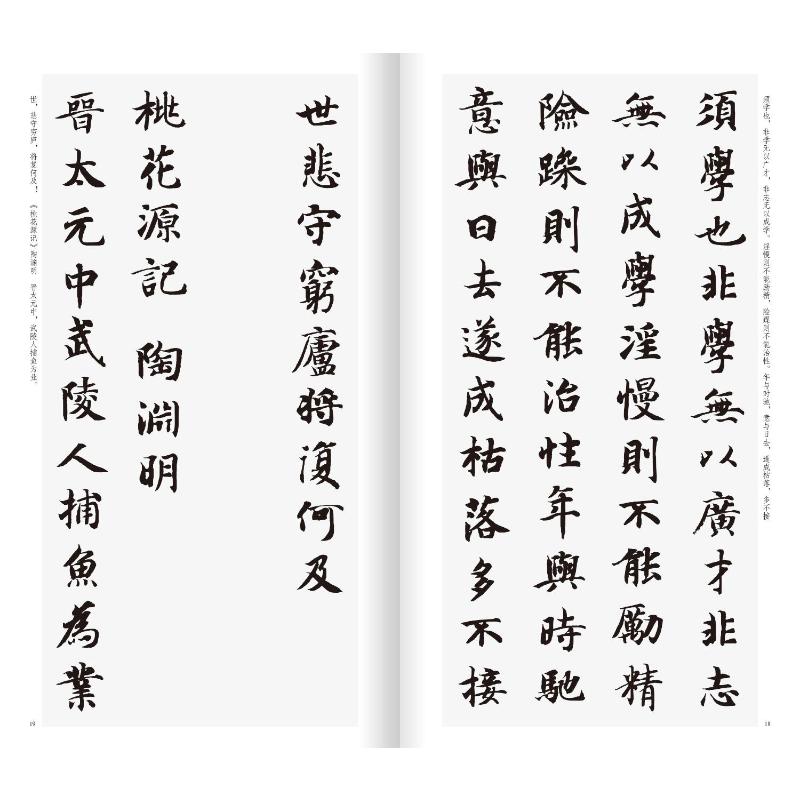 须学也，非学无以广才，非志无以成学。淫慢则不能励精，险躁则不能治性。年与时驰，意与日去，遂成枯落，多不接
須學也非學無以廣才非志
無以成學淫慢則不能勵精
險躁則不能治性年與時馳
意與日去遂成枯落多不接
18
世悲守窮廬將復何及
桃花源記 陶淵明
晉太元中武陵人捕魚為業
世，悲守穷庐，将复何及！ 《桃花源记》陶渊明 晋太元中，武陵人捕鱼为业。
19